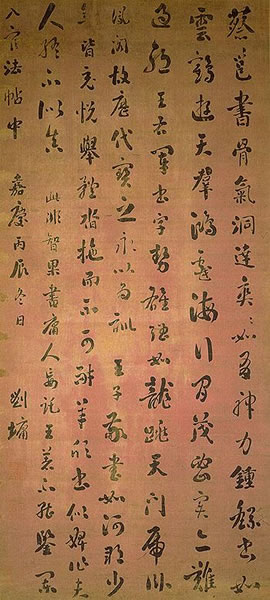 蔡邕書骨氣洞達爽爽如有神力鍾繇書如
雲鶴遊天羣鴻戲海行間茂密實亦難
過王右軍書字勢雄強如龍跳天門虎臥
鳳閣故歷代寶之永以為訓 王子敬書如河朔少
年皆充悅舉體沓拖而不可耐羊欣書似婢作夫
人終不似真 此非智果書庸人妄託王著不能鑒
入官法帖中 嘉慶丙辰冬日 劉墉